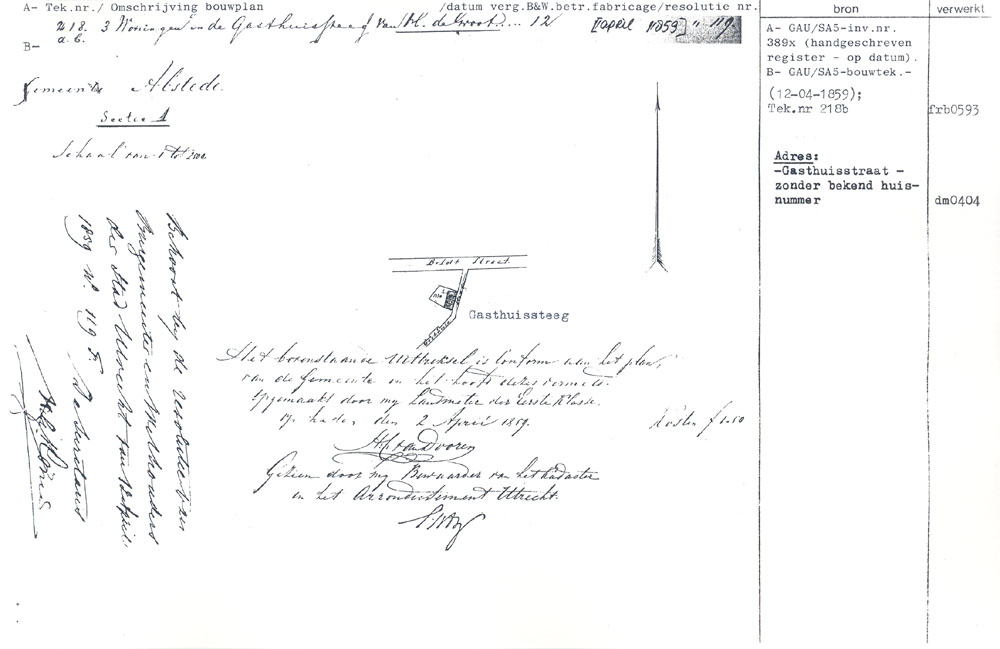 A- Tek.nr./ Omschrijving bouwplan /datum verg.B&W.betr.fabricage/resolutie nr.
218. 3 Woningen in de Gasthuissteeg van H. de Groot ... 12 [april 1859] " 119.
a.b.
B-
Gemeente Abstede.
Sectie A
Schaal van 1 tot
Behoort bij de resolutie van
Burgemeester en Wethouders
der Stad Utrecht van 12 April
1859 No. 119 F
De Secretaris
Beldt Straat
Gasthuissteeg
Het bovenstaande Uittreksel is conform aan het plan,
van de Gemeente in het hoofd dezes vermeld.
opgemaakt door mij Landmeter der Eerste Klasse.
op heden den 2 April 1859. Kosten f 1.50
van Dooren
Gezien door mij Bewaarder van het Kadaster
in het Arrondissement Utrecht.
bron
A- GAU/SA5-inv.nr.
389x (handgeschreven
register - op datum).
B- GAU/SA5-bouwtek.-
(12-04-1859);
Tek.nr 218b
Adres:
-Gasthuisstraat -
zonder bekend huis-
nummer
verwerkt
frb0593
dm0404